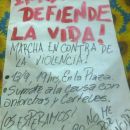 DEFIENDE
LA VIDA!
MARCHA EN CONTRA
DE LA
VIOLENCIA!
19hs En la Plaza.
Sumate a la causa con
antorchas y Carteles.
LOS ESPERAMOS!
NO
ME